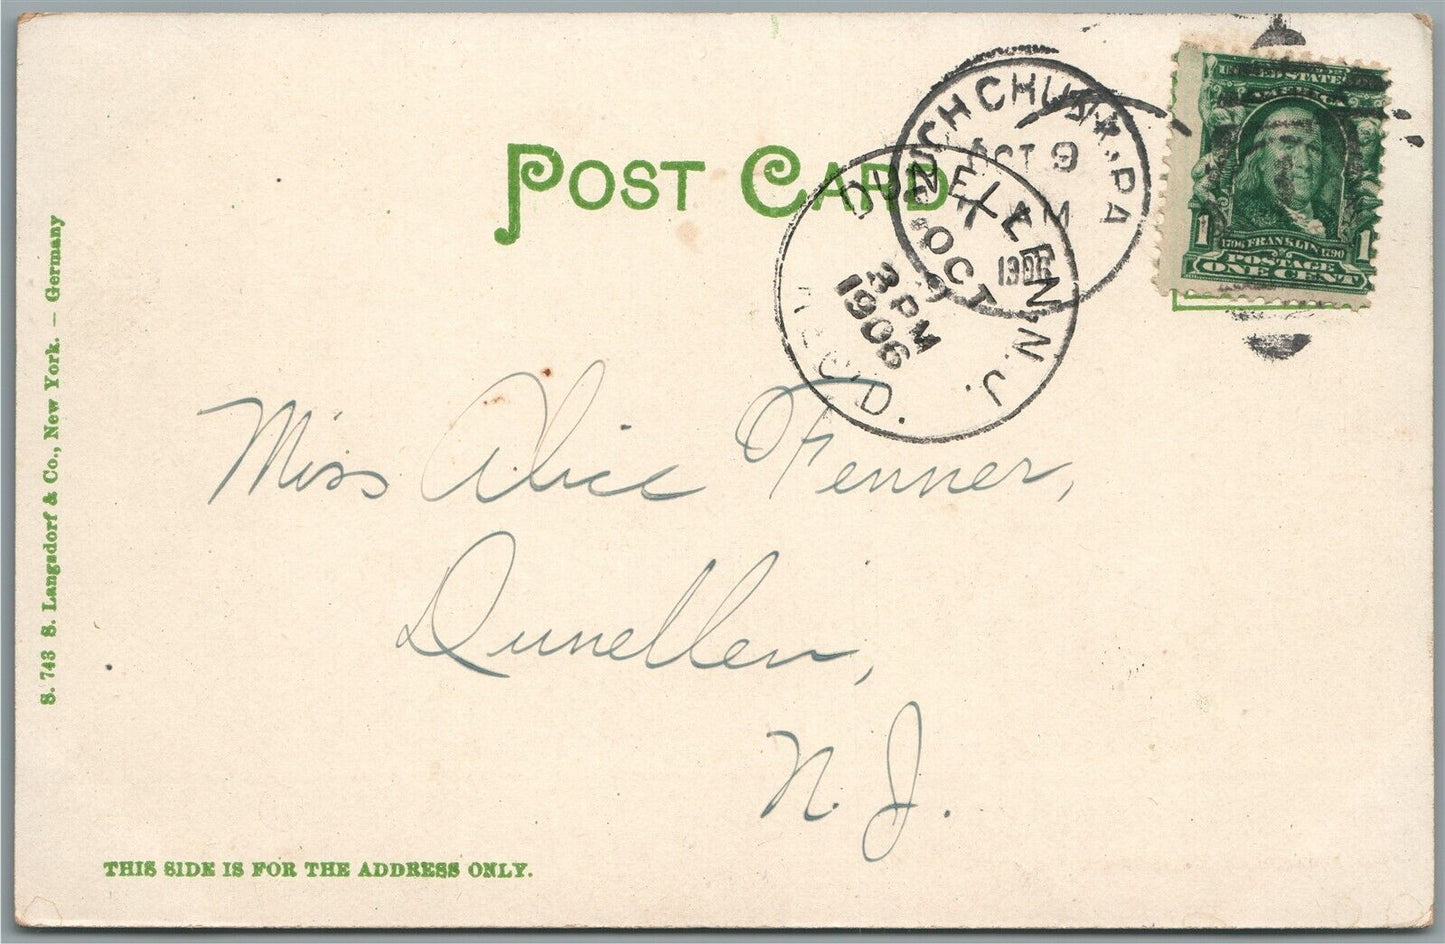 POST CARD
MAUCH CHUNK, PA
OCT 9
AM
1906
DUNELLEN, N.J.
REC'D.
OCT 9
3 PM
1906
UNITED STATES
AMERICA
1706 FRANKLIN 1790
POSTAGE
1 ONE CENT 1
Miss Alice Fenner,
Dunellen,
N. J.
S. 743 S. Langsdorf & Co., New York. – Germany
THIS SIDE IS FOR THE ADDRESS ONLY.